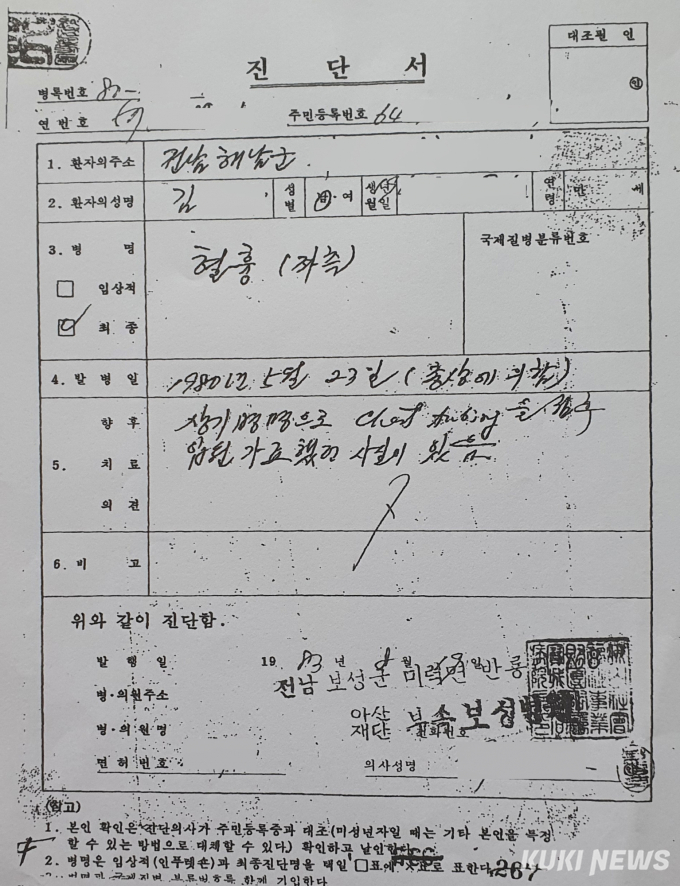 대조필 인
인
진 단 서
병록번호 82-
연번호
주민등록번호 64
1. 환자의주소 전남 해남군.
2. 환자의성명 김 성별 남·여 생년월일 연령 만 세
3. 병 명 혈흉 (좌측) 국제질병분류번호
임상적
최종
4. 발병일 1980년 5월 23일 (총상에 의함)
향후 상기 병명으로 Chest
5. 치료 입원 가료했던 사실이 있음
의견
6. 비 고
위와 같이 진단함.
발행일 1983년 월 일
병·의원주소 전남 보성군 미력면 반룡
병·의원명 아산재단 부속보성병원 전화번호
면허번호 의사성명
(참고)
1. 본인 확인은 진단의사가 주민등록증과 대조(미성년자일 때는 기타 본인을 특정
할 수 있는 방법으로 대체할 수 있다) 확인하고 날인한다.
2. 병명은 임상적(인푸렛숀)과 최종진단명을 택일 □표에 ✓표로 표한다.
267
3. 병명란 국제질병 분류번호를 함께 기입한다
KUKI NEWS